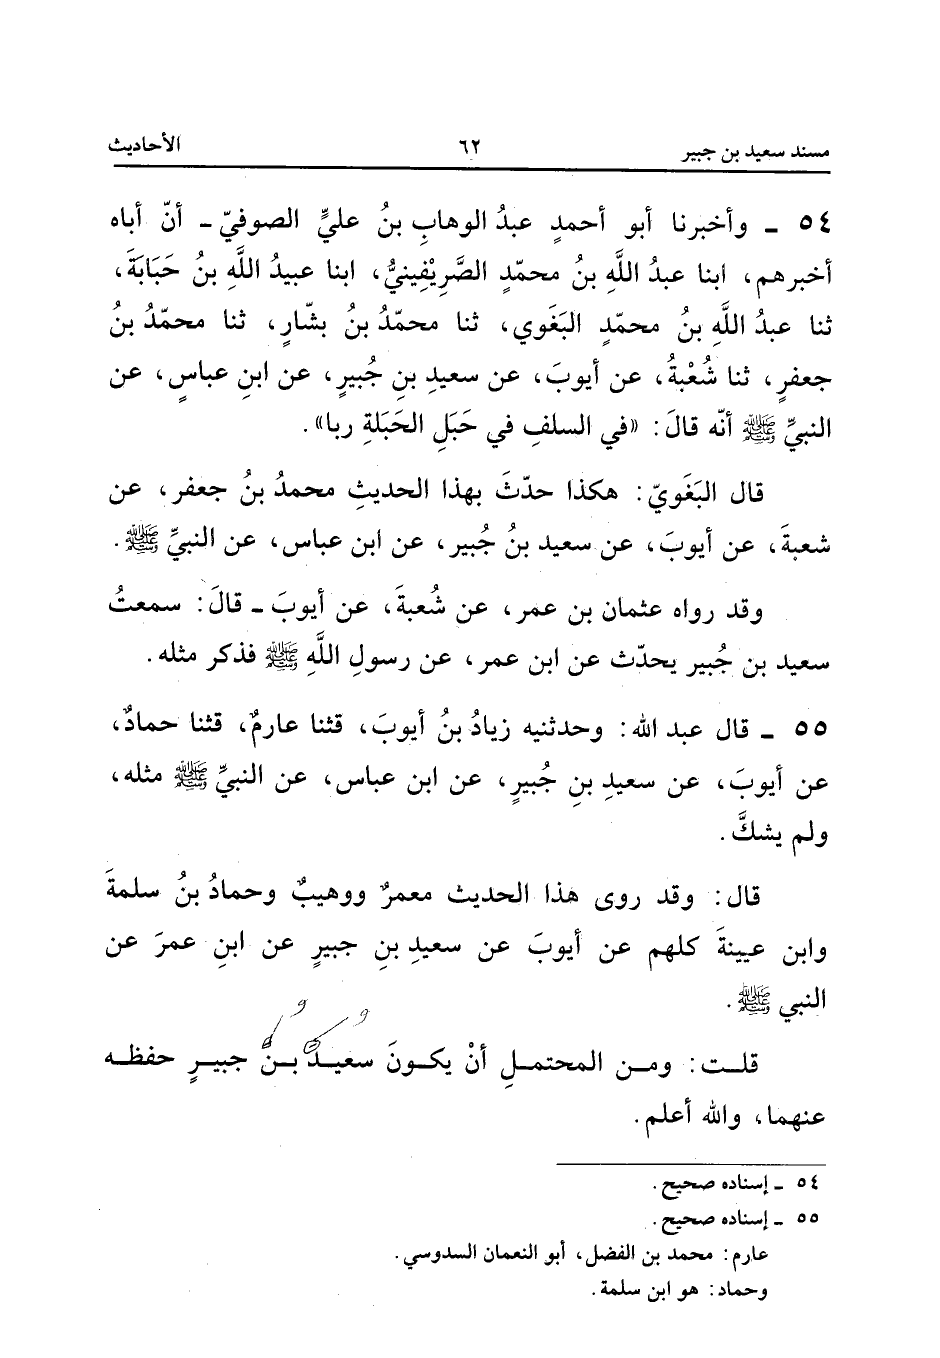 مسند سعيد بن جبير ٦٢ الأحاديث
٥٤ ـ وأخبرنا أبو أحمدٍ عبدُ الوهابِ بنُ عليٍّ الصوفيّ ـ أنّ أباه
أخبرهم، ابنا عبدُ اللَّهِ بنُ محمّدٍ الصَّرِيْفِينيُّ، ابنا عبيدُ اللَّهِ بنُ حَبَابَةَ،
ثنا عبدُ اللَّهِ بنُ محمّدٍ البَغَوي، ثنا محمّدُ بنُ بشّارٍ، ثنا محمّدُ بنُ
جعفرٍ، ثنا شُعْبةُ، عن أيوبَ، عن سعيدِ بنِ جُبيرٍ، عن ابنِ عباسٍ، عن
النبيِّ ﷺ أنّه قالَ: «في السلفِ في حَبَلِ الحَبَلةِ ربا».
قال البَغَويّ: هكذا حدّثَ بهذا الحديثِ محمدُ بنُ جعفر، عن
شعبةَ، عن أيوبَ، عن سعيد بنُ جُبير، عن ابن عباس، عن النبيِّ ﷺ.
وقد رواه عثمان بن عمر، عن شُعبةَ، عن أيوبَ ـ قالَ: سمعتُ
سعيد بن جُبير يحدّث عن ابن عمر، عن رسولِ اللَّهِ ﷺ فذكر مثله.
٥٥ ـ قال عبد الله: وحدثنيه زيادُ بنُ أيوبَ، قثنا عارمٌ، قثنا حمادٌ،
عن أيوبَ، عن سعيدِ بنِ جُبيرٍ، عن ابن عباس، عن النبيِّ ﷺ مثله،
ولم يشكَّ.
قال: وقد روى هذا الحديث معمرٌ ووهيبٌ وحمادُ بنُ سلمةَ
وابن عيينةَ كلهم عن أيوبَ عن سعيدِ بنِ جبيرٍ عن ابنِ عمرَ عن
النبي ﷺ.
قلت: ومن المحتملِ أنْ يكونَ سعيدُ بنُ جبيرٍ حفظه
عنهما، والله أعلم.
٥٤ ـ إسناده صحيح.
٥٥ ـ إسناده صحيح.
عارم: محمد بن الفضل، أبو النعمان السدوسي.
وحماد: هو ابن سلمة.